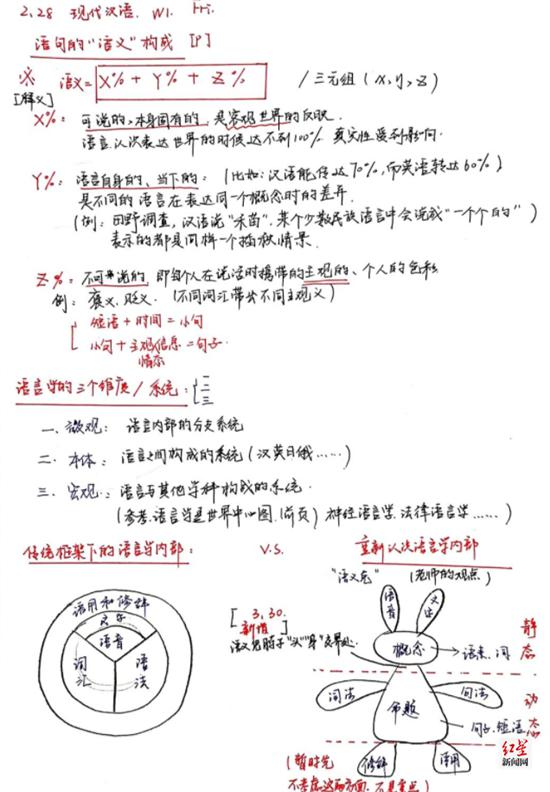 2.28 现代汉语. W1. Fri.
语句的"语义"构成 [P]
※ 语义= X% + Y% + Z% /三元组 (X, Y, Z)
[释义]
X%: 可说的、本身固有的, 是客观世界的反映.
语言认识表达世界的时候达不到100%, 真实性受到影响.
Y%: 语言自身的、当下的: (比如: 汉语能传达70%, 而英语转达60%)
是不同的语言在表达同一个概念时的差异.
(例: 田野调查, 汉语说"禾苗", 某个少数民族语言中会说成"一个个的")
表示的都是同样一个插秧情景.
Z%: 不可说的, 即每个人在说话时携带的主观的、个人的色彩
例: 褒义、贬义. (不同词汇带出不同主观义)
短语+时间=小句
小句+主观信息=句子.
情态
语言学的三个维度/系统: 一 二 三
一、微观: 语言内部的分支系统
二、本体: 语言之间构成的系统 (汉英日俄……)
三、宏观: 语言与其他学科构成的系统.
(参考"语言学是世界中心图", 前页) 神经语言学、法律语言学……)
传统框架下的语言学内部: V.S. 重新认识语言学内部
"语义兔" (老师的观点)
语用和修辞
文字
语音
词汇
语法
[3.30. 新增]
语音
文字
概念
语素、词
静态
词法
句法
命题
句子、短语
动态
修辞
语用
(暂时先
不考虑这两方面, 不是重点)
红星
新闻网